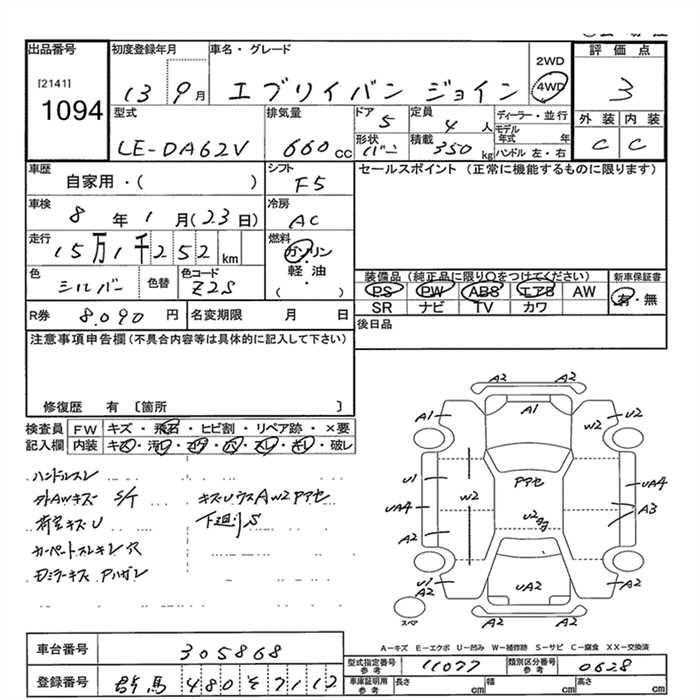 出品番号 初度登録年月 車名・グレード 評価点
[2141]
1094
13 9月 エブリイバン ジョイン 2WD 4WD 3
型式 排気量 ドア 定員 ディーラー・並行 外装 内装
LE-DA62V 660cc 5 4人 モデル年式 年 C C
形状 バン 積載 350kg ハンドル 左・右
車歴 シフト セールスポイント (正常に機能するものに限ります)
自家用・( ) F5
車検 冷房
8年1月(23日) AC
走行 燃料
15万1千252km ガソリン・軽油・( )
色 色替 色コード 装備品(純正品に限り○をつけてください) 新車保証書
シルバー Z2S PS PW ABS エアB AW 有・無
SR ナビ TV カワ
R券 8,090円 名変期限 月 日 後日品
注意事項申告欄(不具合内容等は具体的に記入して下さい)
修復歴 有 〔箇所 〕
検査員記入欄 FW キズ・飛石・ヒビ割・リペア跡・×要
内装 キズ・汚レ・コゲ・穴・スレ・キレ・破レ
ハンドルスレ
外AWキズ S/T キズUウスAW2アアセ
荷室キズU 下廻りS
カーペットスレキレ穴
Dミラーキズ Aハガレ
A2 A2
A1 A1 U2
W2
U1 アアセ UA4
W2 A3
UA4 U2
A2
U1 A2 UA2 A2
A2 A2
スペア
A-キズ E-エクボ U-凹み W-補修跡 S-サビ C-腐食 XX-交換済
車台番号 305868
型式指定番号 参考 11077 類別区分番号 参考 0628
登録番号 群馬 480そ7112
車庫証明用 参考 長さ cm 幅 cm 高さ cm